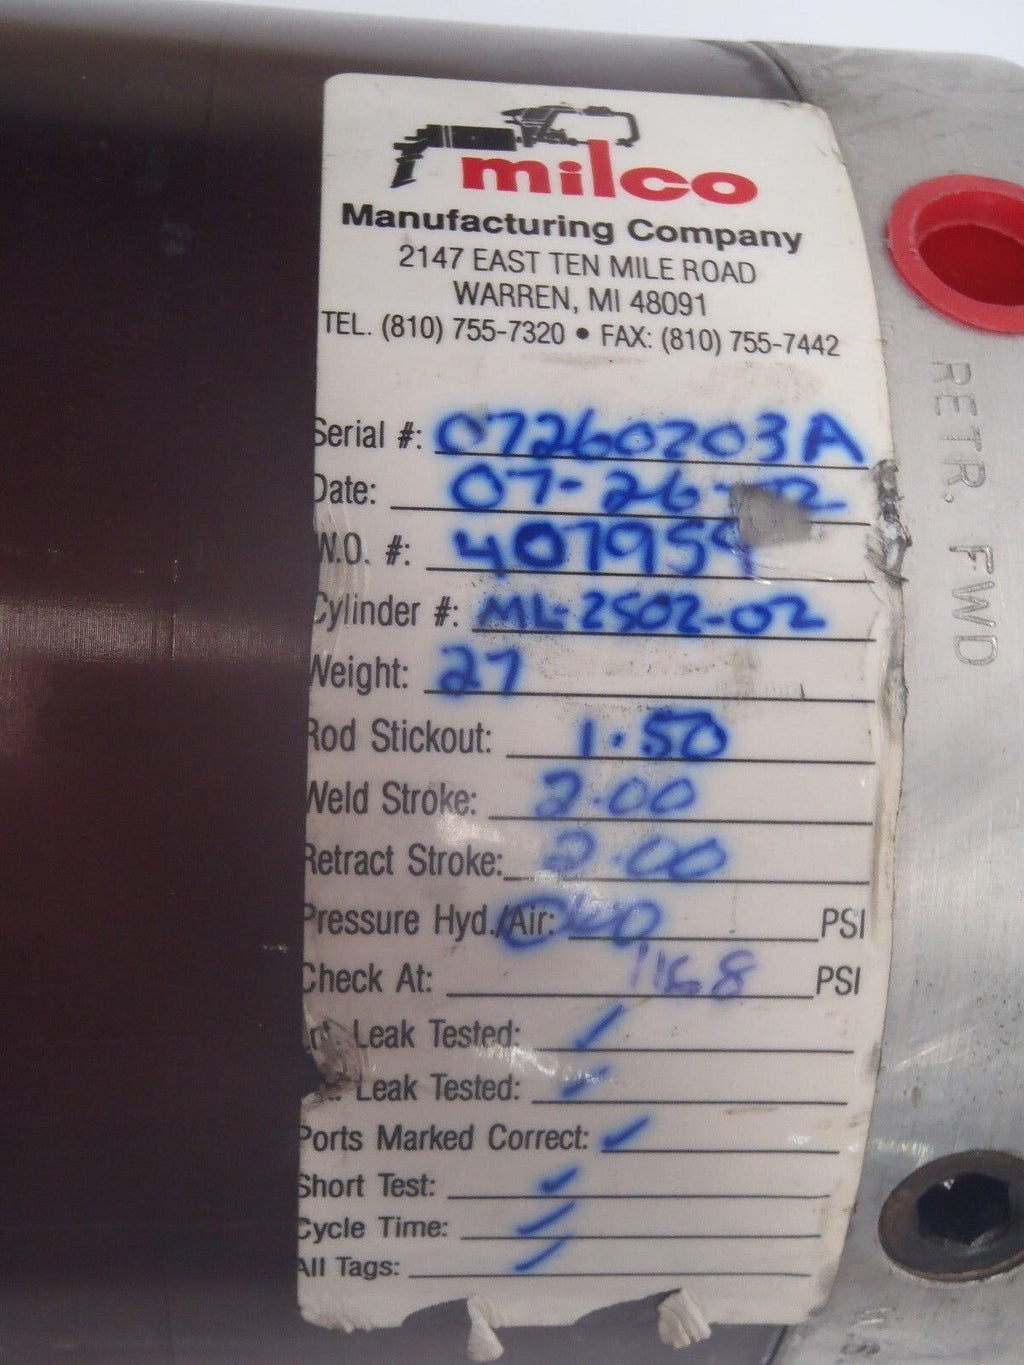 milco
Manufacturing Company
2147 EAST TEN MILE ROAD
WARREN, MI 48091
TEL. (810) 755-7320 • FAX: (810) 755-7442
Serial #: 07260203A
Date: 07-26-02
W.O. #: 407959
Cylinder #: ML-2502-02
Weight: 27
Rod Stickout: 1.50
Weld Stroke: 2.00
Retract Stroke: 2.00
Pressure Hyd./Air: PSI
Check At: PSI
Leak Tested: ✓
Leak Tested: ✓
Ports Marked Correct: ✓
Short Test: ✓
Cycle Time: ✓
All Tags: ✓
RETR. FWD